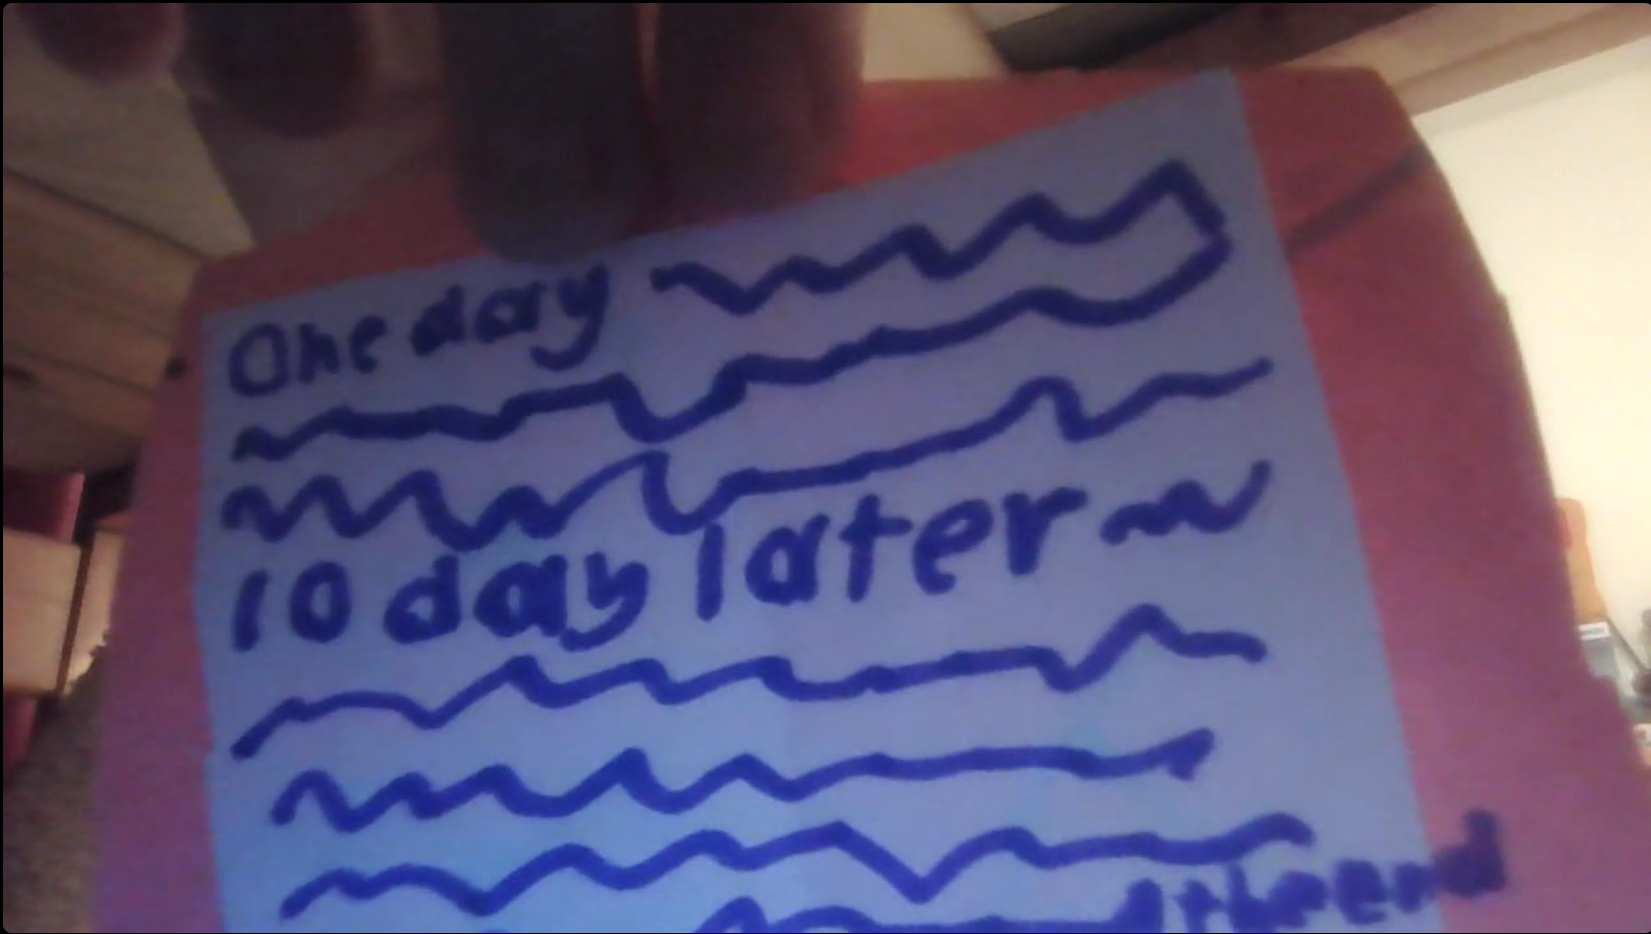 One day
10 day later
the end